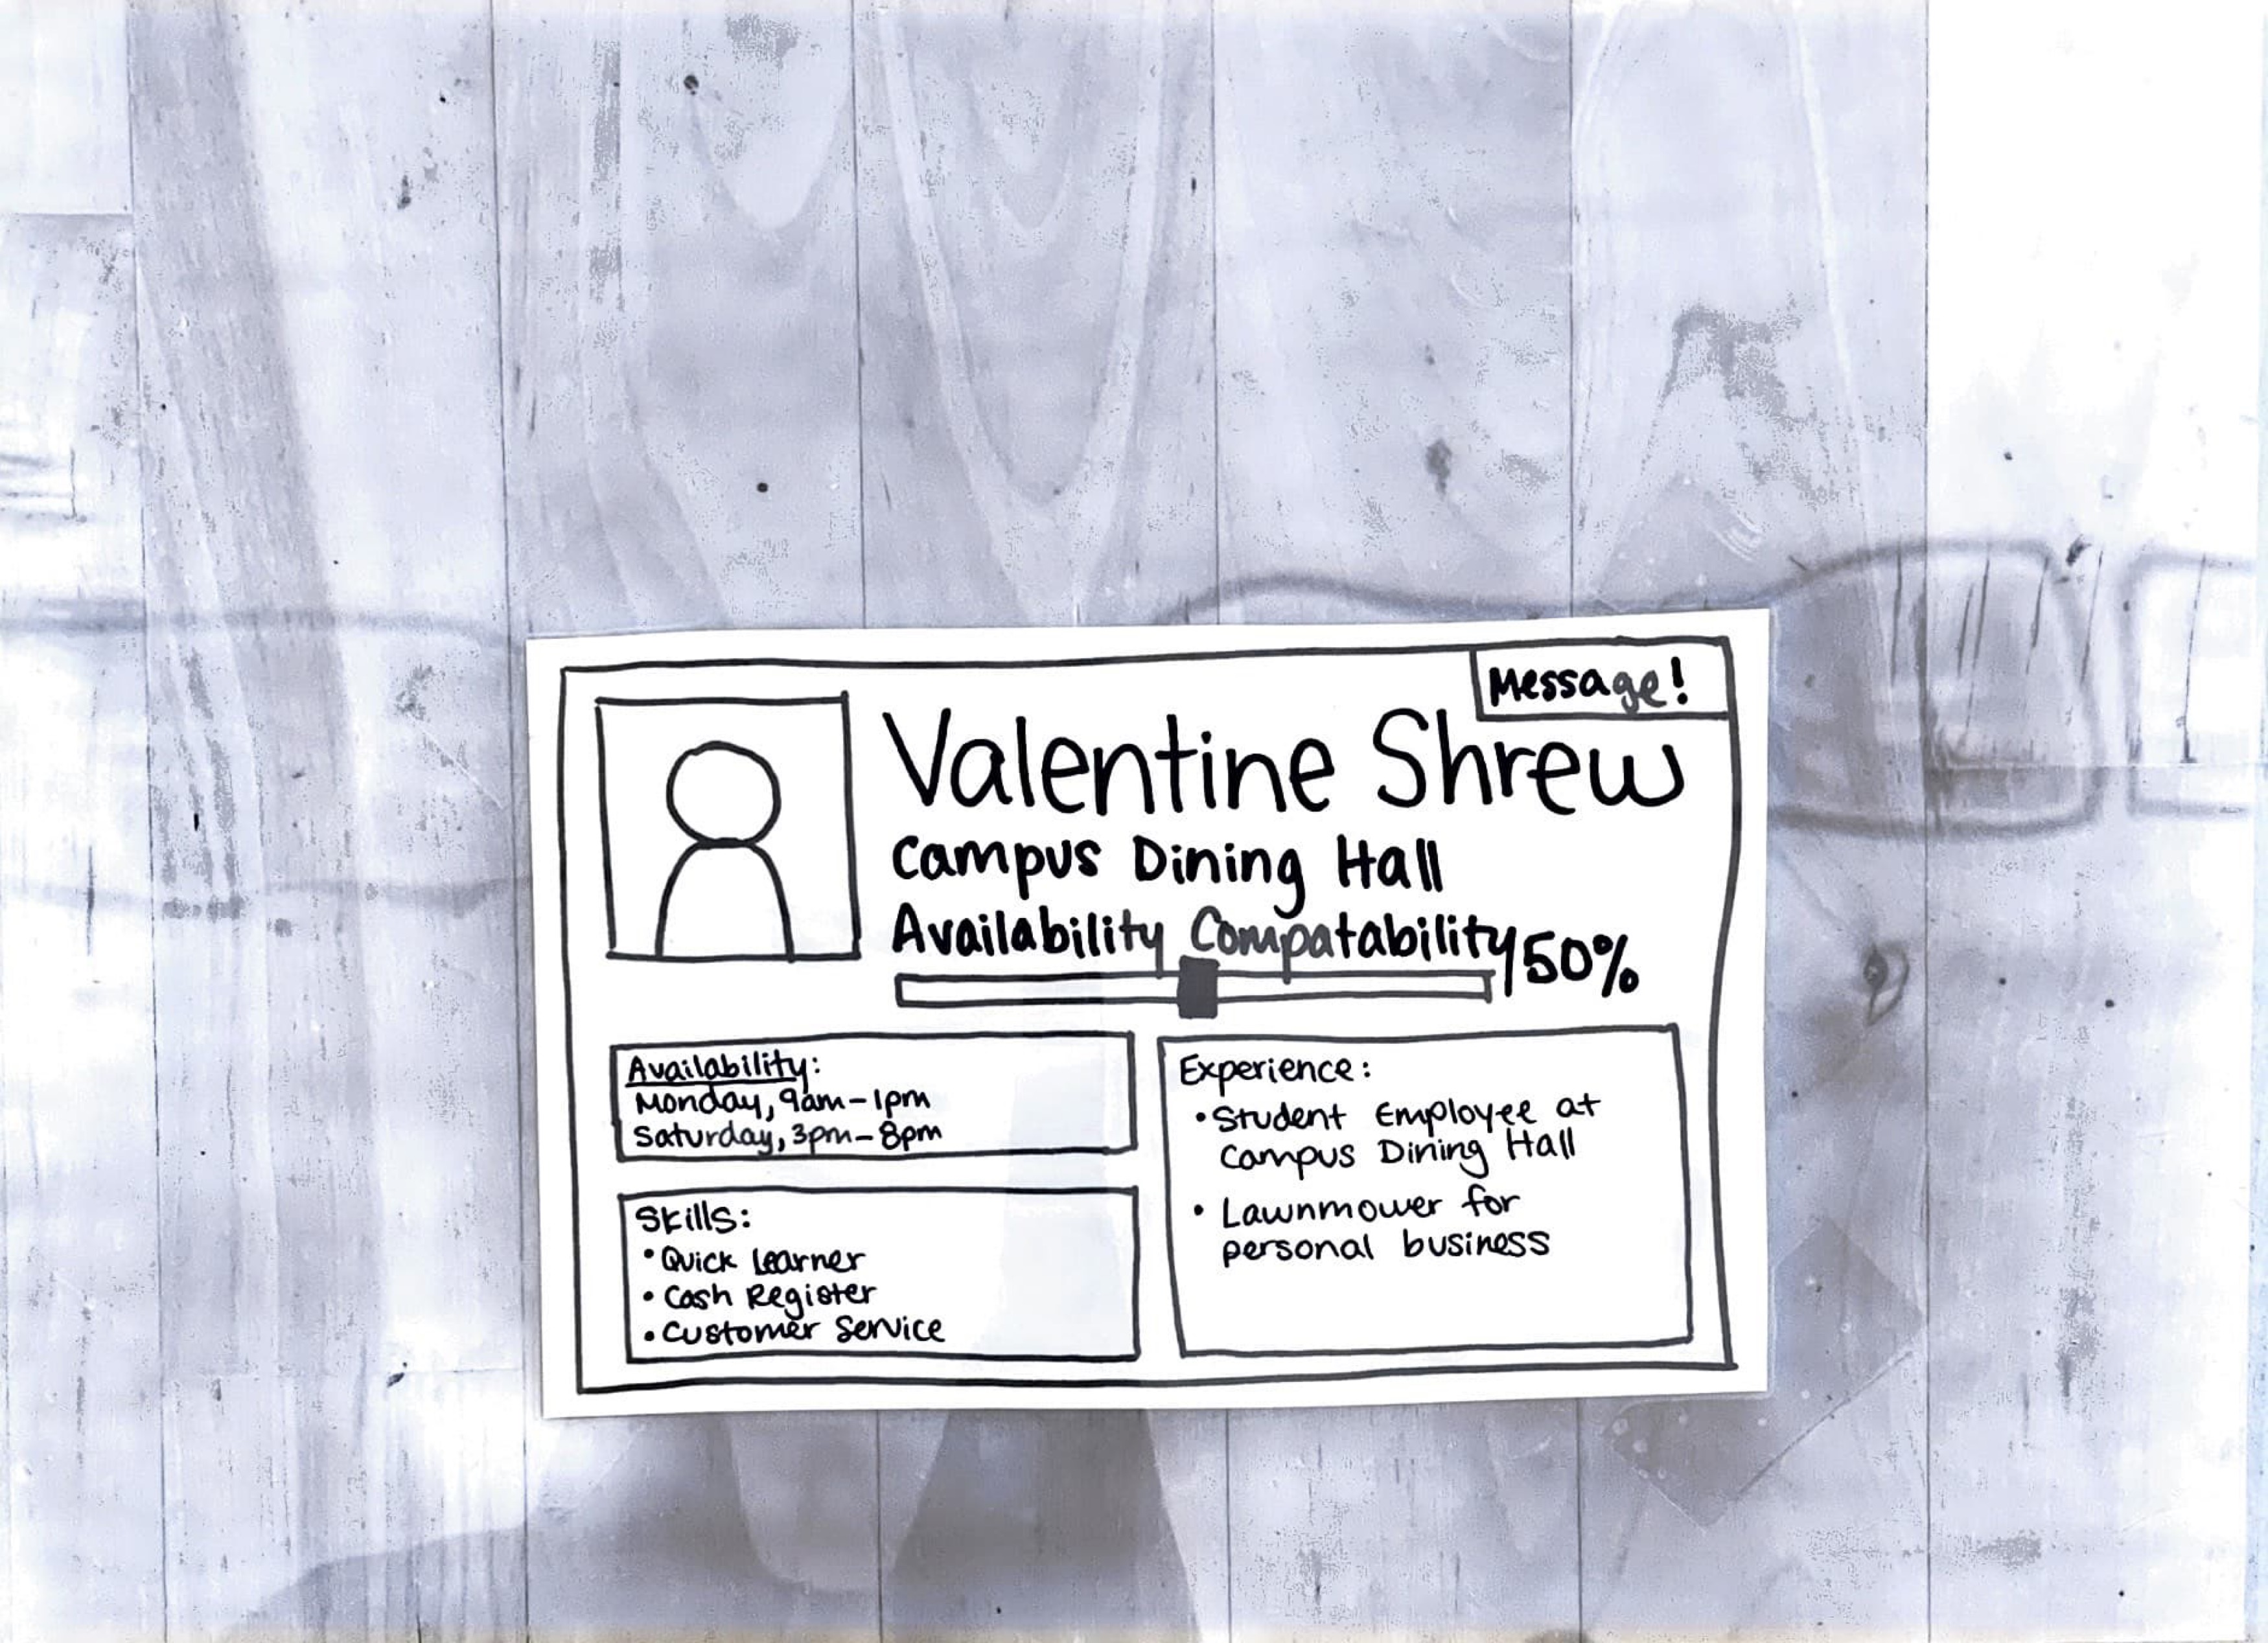 Message!
Valentine Shrew
Campus Dining Hall
Availability Compatability 50%
Availability:
Monday, 9am-1pm
Saturday, 3pm-8pm
Skills:
• Quick Learner
• Cash Register
• Customer Service
Experience:
• Student Employee at
Campus Dining Hall
• Lawnmower for
personal business